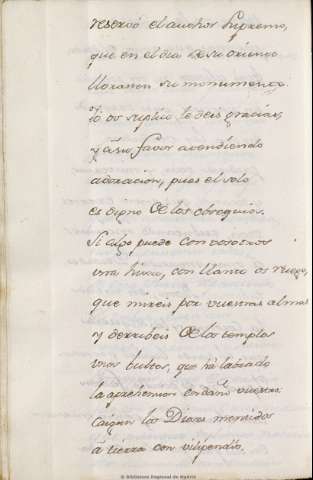 reservó el author Supremo,
que en el dia de su
lloraron su monumento.
Yo os suplico le deis gracias,
y a su favor
adoracion, pues el solo
es digno de los obsequios.
Si algo puede con vosotros
una, con llanto os ruego,
que mireis por vuestras almas
y derribeis de los templos
unos bultos, que há labrado
la aprehension
Caigan los Dioses mentidos
á tierra con vilipendio.
© Biblioteca Regional de Madrid